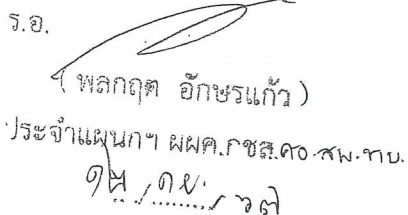 ร.อ.
( พลกฤต อักษรแก้ว )
ประจำแผนกฯ ผผค.กชส.ศอ.สพ.ทบ.
๑๒ / ก.ย. / ๖๗